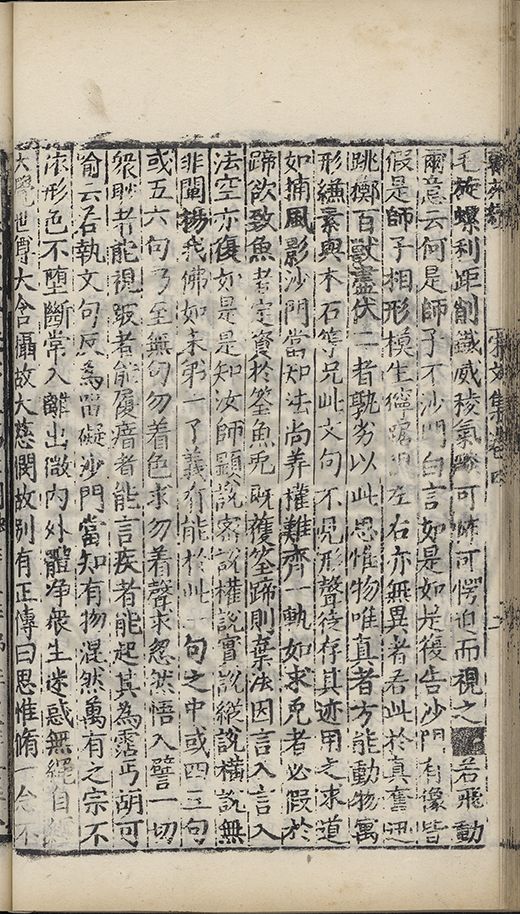 文集卷四 二
毛旋螺利距削鐵威稜氣 可怖可愕迫而視之 若飛動
爾意云何是師子不沙門白言如是如是復告沙門有像皆
假是師子相形模生獰蹲 左右亦無異者若此於真奮迅
跳擲百獸盡伏二者孰劣以此思惟物唯真者方能動物寓
形縑素與木石等况此文句不見形聲徒存其迹用之求道
如捕風影沙門當知法尚荈權難齊一軌如求兎者必假於
蹄欲致魚者定資於筌魚兎既獲筌蹄則棄法因言入言入
法空亦復如是是知汝師顯說密說權說實說縱說橫說無
非闡揚我佛如來第一了義有能於此一句之中或四三句
或五六句乃至無句勿着色求勿着聲求忽然悟入譬一切
衆眇者能視跛者能履瘖者能言疾者能起其為靈丐胡可
喻云若執文句反為留礙沙門當知有物混然萬有之宗不
㳒形色不墮斷常入離出微內外體净衆生迷惑無繩自
大覺世尊大含攝故大慈憫故別有正傳曰思惟脩一念不